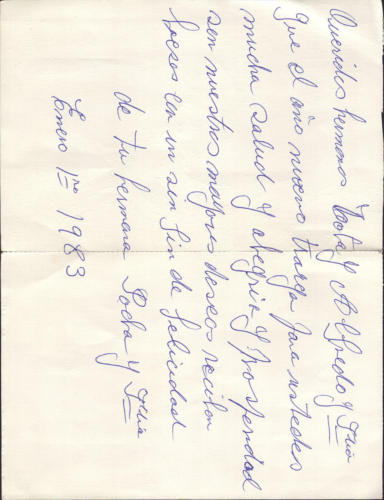 Queridos hermanos y Alfredo y Flia
que el año nuevo traiga para ustedes
mucha salud y alegria y Prosperidad
son nuestros mayores deseos reciban
besos con un sin fin de felicidad
de tu hermana Pocha y Flia
Enero 1ro 1983